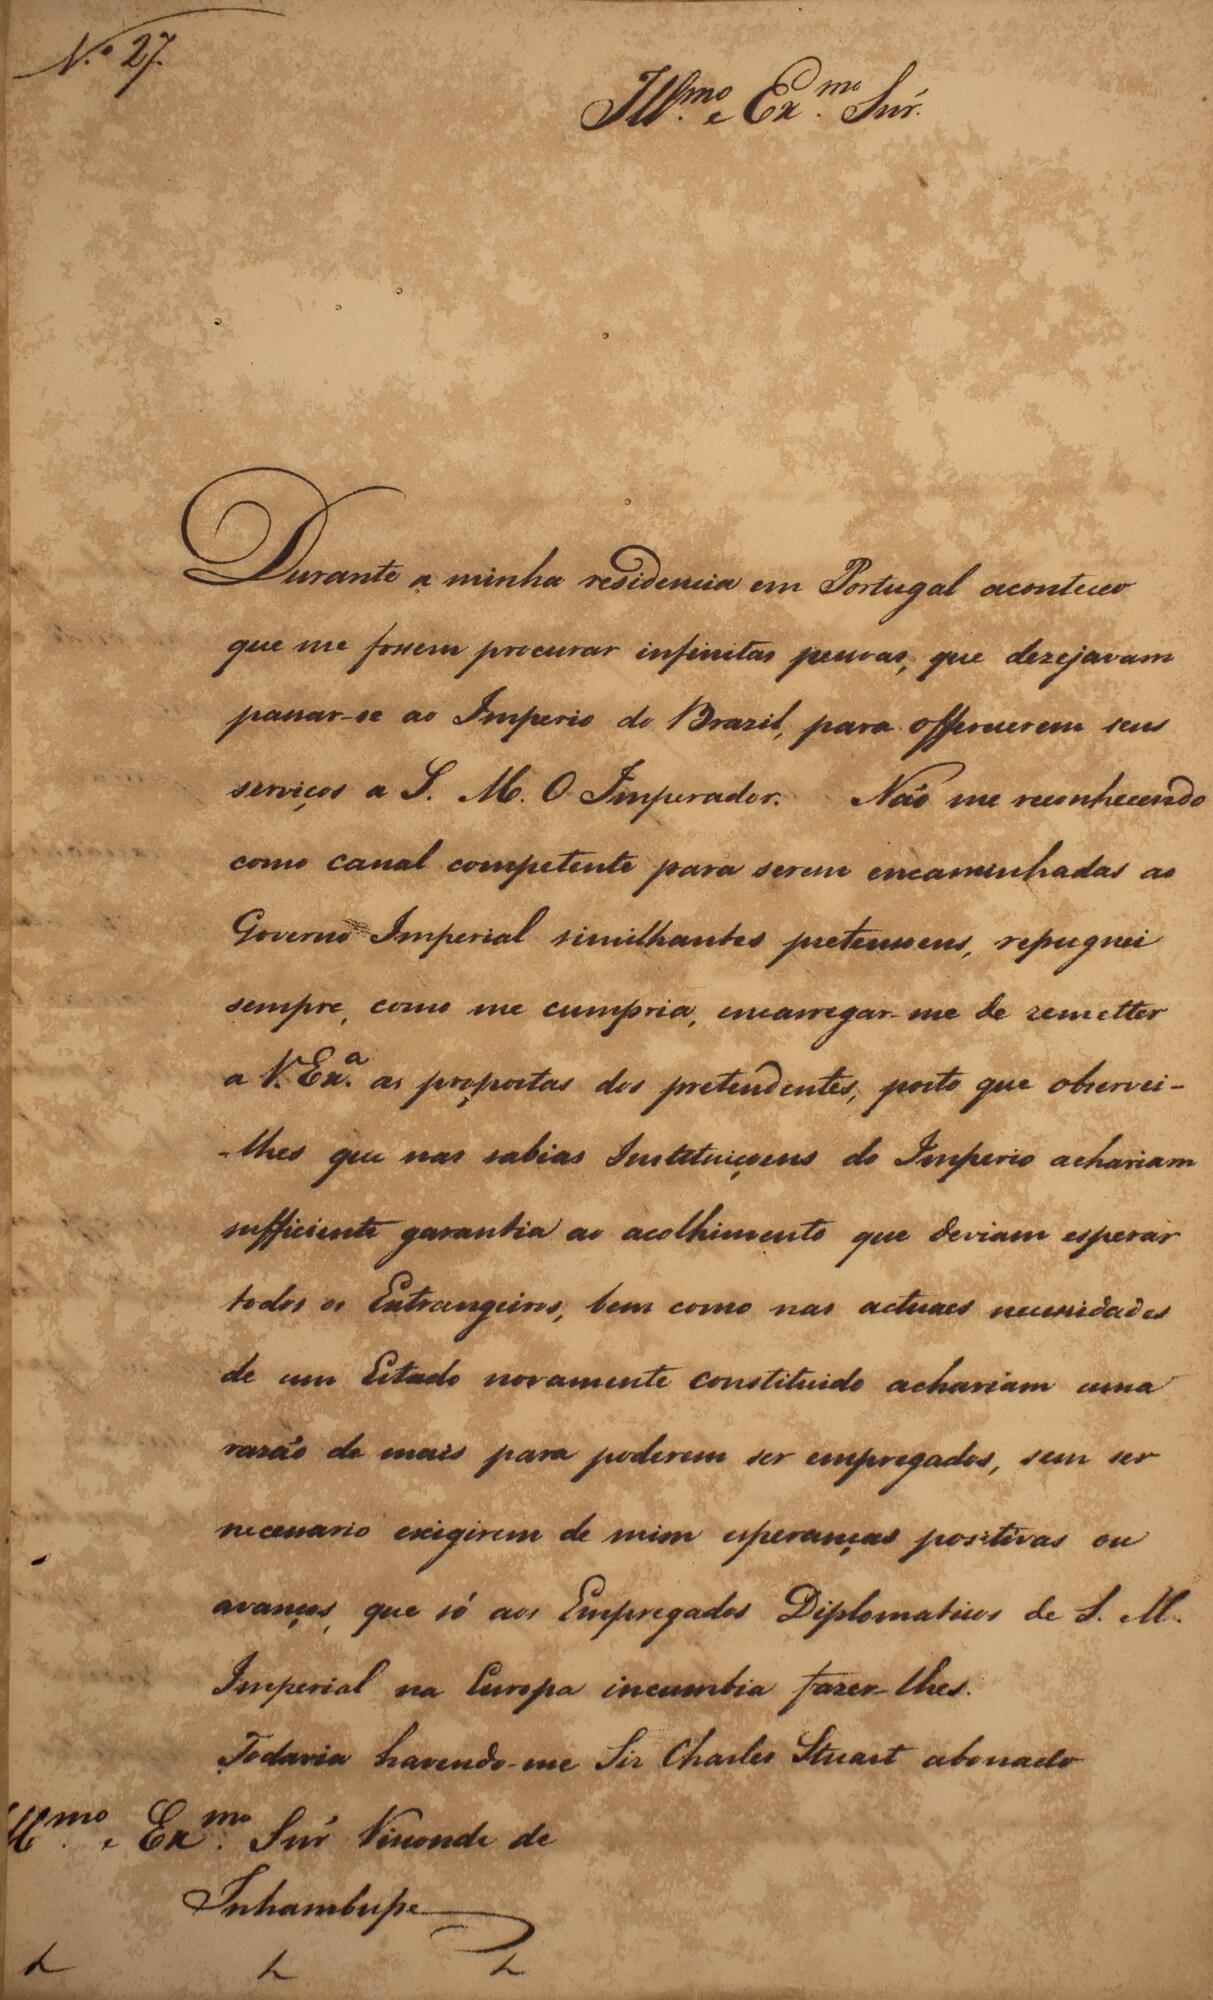 N.º 27.
Ill.mo e Ex.mo Snr̃.
Durante a minha residencia em Portugal aconteceo
que me fossem procurar infinitas pessoas, que dezejavam
passar-se ao Imperio do Brazil, para offerecerem seus
serviços a S. M. O Imperador. Não me reconhecendo
como canal competente para serem encaminhadas ao
Governo Imperial similhantes pretensoens, repugnei
sempre, como me cumpria, encarregar-me de remetter
a V. Ex.ª as propostas dos pretendentes, posto que observei-
-lhes que nas sabias Instituiçoens do Imperio achariam
sufficiente garantia ao acolhimento que deviam esperar
todos os Estrangeiros, bem como nas actuaes necessidades
de um Estado novamente constituido achariam uma
razão de mais para poderem ser empregados, sem ser
necessario exigirem de mim esperanças positivas ou
avanços, que só aos Empregados Diplomaticos de S. M.
Imperial na Europa incumbia fazer-lhes.
Todavia havendo-me Sir Charles Stuart abonado
Ill.mo e Ex.mo Snr̃ Visconde de
Inhambupe